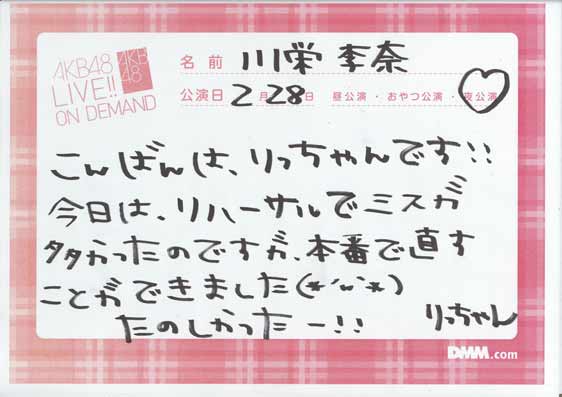 AKB48
LIVE!!
ON DEMAND
AKB
48
名前 川栄 李奈
公演日 2月28日 昼公演・おやつ公演・夜公演
こんばんは、りっちゃんです!!
今日は、リハーサルでミスが
多かったのですが、本番で直す
ことができました(*´ω`*)
たのしかったー!!
りっちゃん
DMM.com